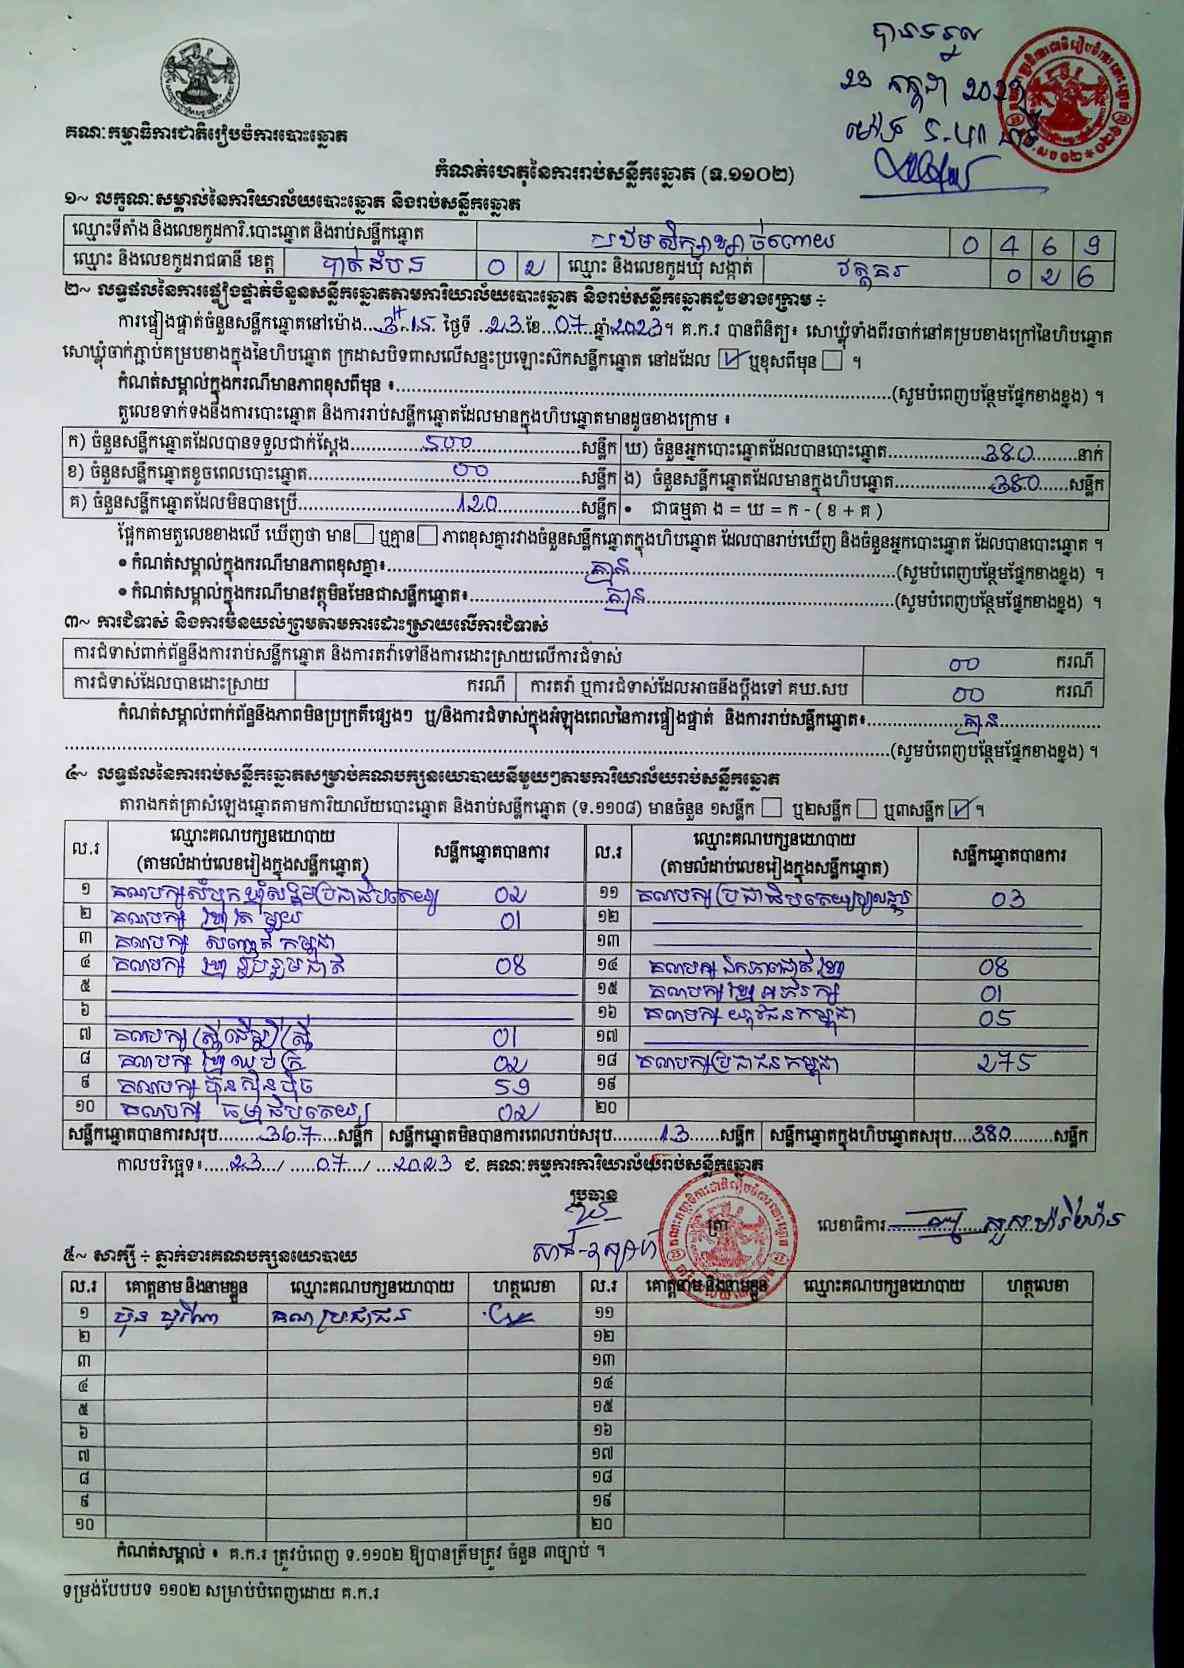 បានទទួល
23 កក្កដា 2023
គណៈកម្មាធិការជាតិរៀបចំការបោះឆ្នោត
កំណត់ហេតុនៃការរាប់សន្លឹកឆ្នោត (ទ.១១០២)
១~ លក្ខណៈសម្គាល់នៃការិយាល័យបោះឆ្នោត និងរាប់សន្លឹកឆ្នោត
ឈ្មោះទីតាំង និងលេខកូដការិ.បោះឆ្នោត និងរាប់សន្លឹកឆ្នោត បឋមសិក្សាខ្សាច់ពោយ 0 4 6 9
ឈ្មោះ និងលេខកូដរាជធានី ខេត្ត បាត់ដំបង 0 2 ឈ្មោះ និងលេខកូដឃុំ សង្កាត់ វត្តគរ 0 2 6
២~ លទ្ធផលនៃការផ្ទៀងផ្ទាត់ចំនួនសន្លឹកឆ្នោតតាមការិយាល័យបោះឆ្នោត និងរាប់សន្លឹកឆ្នោតដូចខាងក្រោម ÷
ការផ្ទៀងផ្ទាត់ចំនួនសន្លឹកឆ្នោតនៅម៉ោង...3H 15 ថ្ងៃទី .23.ខែ..07..ឆ្នាំ2023។ គ.ក.រ បានពិនិត្យ៖ សោឃ្លុំទាំងពីរចាក់នៅគម្របខាងក្រៅនៃហិបឆ្នោត
សោឃ្លុំចាក់ភ្ជាប់គម្របខាងក្នុងនៃហិបឆ្នោត ក្រដាសបិទពាសលើសន្ទះប្រឡោះស៊កសន្លឹកឆ្នោត នៅដដែល ☑ ឬខុសពីមុន ☐ ។
កំណត់សម្គាល់ក្នុងករណីមានភាពខុសពីមុន ៖.....(សូមបំពេញបន្ថែមផ្នែកខាងខ្នង) ។
តួលេខទាក់ទងនឹងការបោះឆ្នោត និងការរាប់សន្លឹកឆ្នោតដែលមានក្នុងហិបឆ្នោតមានដូចខាងក្រោម ៖
ក) ចំនួនសន្លឹកឆ្នោតដែលបានទទួលជាក់ស្តែង.....500.....សន្លឹក ឃ) ចំនួនអ្នកបោះឆ្នោតដែលបានបោះឆ្នោត.....380.....នាក់
ខ) ចំនួនសន្លឹកឆ្នោតខូចពេលបោះឆ្នោត.....00.....សន្លឹក ង) ចំនួនសន្លឹកឆ្នោតដែលមានក្នុងហិបឆ្នោត.....380.....សន្លឹក
គ) ចំនួនសន្លឹកឆ្នោតដែលមិនបានប្រើ.....120.....សន្លឹក • ជាធម្មតា ង = ឃ = ក - ( ខ + គ )
ផ្អែកតាមតួលេខខាងលើ ឃើញថា មាន ☐ ឬគ្មាន ☐ ភាពខុសគ្នារវាងចំនួនសន្លឹកឆ្នោតក្នុងហិបឆ្នោត ដែលបានរាប់ឃើញ និងចំនួនអ្នកបោះឆ្នោត ដែលបានបោះឆ្នោត ។
• កំណត់សម្គាល់ក្នុងករណីមានភាពខុសគ្នា៖.....គ្មាន.....(សូមបំពេញបន្ថែមផ្នែកខាងខ្នង) ។
• កំណត់សម្គាល់ក្នុងករណីមានវត្ថុមិនមែនជាសន្លឹកឆ្នោត៖.....គ្មាន.....(សូមបំពេញបន្ថែមផ្នែកខាងខ្នង) ។
៣~ ការជំទាស់ និងការមិនយល់ព្រមតាមការដោះស្រាយលើការជំទាស់
ការជំទាស់ពាក់ព័ន្ធនឹងការរាប់សន្លឹកឆ្នោត និងការតវ៉ាទៅនឹងការដោះស្រាយលើការជំទាស់ 00 ករណី
ការជំទាស់ដែលបានដោះស្រាយ ករណី ការតវ៉ា ឬការជំទាស់ដែលអាចនឹងប្តឹងទៅ គឃ.សប 00 ករណី
កំណត់សម្គាល់ពាក់ព័ន្ធនឹងភាពមិនប្រក្រតីផ្សេងៗ ឬ/និងការជំទាស់ក្នុងអំឡុងពេលនៃការផ្ទៀងផ្ទាត់ និងការរាប់សន្លឹកឆ្នោត៖.....គ្មាន.....
.....(សូមបំពេញបន្ថែមផ្នែកខាងខ្នង) ។
៤~ លទ្ធផលនៃការរាប់សន្លឹកឆ្នោតសម្រាប់គណបក្សនយោបាយនីមួយៗតាមការិយាល័យរាប់សន្លឹកឆ្នោត
តារាងកត់ត្រាសំឡេងឆ្នោតតាមការិយាល័យបោះឆ្នោត និងរាប់សន្លឹកឆ្នោត (ទ.១១០៨) មានចំនួន ១សន្លឹក ☐ ឬ២សន្លឹក ☐ ឬ៣សន្លឹក ☑ ។
ល.រ ឈ្មោះគណបក្សនយោបាយ (តាមលំដាប់លេខរៀងក្នុងសន្លឹកឆ្នោត) សន្លឹកឆ្នោតបានការ ល.រ ឈ្មោះគណបក្សនយោបាយ (តាមលំដាប់លេខរៀងក្នុងសន្លឹកឆ្នោត) សន្លឹកឆ្នោតបានការ
១ គណបក្សសំបុកឃ្មុំសង្គមប្រជាធិបតេយ្យ 02 ១១ គណបក្សប្រជាធិបតេយ្យមូលដ្ឋាន 03
២ គណបក្ស ខ្មែរតែមួយ 01 ១២
៣ គណបក្ស សញ្ជាតិកម្ពុជា ១៣
៤ គណបក្ស ខ្មែររួបរួមជាតិ 08 ១៤ គណបក្ស ឯកភាពជាតិខ្មែរ 08
៥ ១៥ គណបក្សខ្មែរអភិរក្ស 01
៦ ១៦ គណបក្ស យុវជនកម្ពុជា 05
៧ គណបក្សស្ត្រីដើម្បីស្ត្រី 01 ១៧
៨ គណបក្ស ខ្មែរឈប់ក្រ 02 ១៨ គណបក្សប្រជាជនកម្ពុជា 275
៩ គណបក្ស ហ៊្វុនស៊ិនប៉ិច 59 ១៩
១០ គណបក្ស ធម្មាធិបតេយ្យ 02 ២០
សន្លឹកឆ្នោតបានការសរុប.....367.....សន្លឹក សន្លឹកឆ្នោតមិនបានការពេលរាប់សរុប.....13.....សន្លឹក សន្លឹកឆ្នោតក្នុងហិបឆ្នោតសរុប.....380.....សន្លឹក
កាលបរិច្ឆេទ៖.....23.../....07..../...2023 ជ. គណៈកម្មការការិយាល័យរាប់សន្លឹកឆ្នោត
ប្រធាន ត្រា លេខាធិការ
៥~ សាក្សី ÷ ភ្នាក់ងារគណបក្សនយោបាយ
ល.រ គោត្តនាម និងនាមខ្លួន ឈ្មោះគណបក្សនយោបាយ ហត្ថលេខា ល.រ គោត្តនាម និងនាមខ្លួន ឈ្មោះគណបក្សនយោបាយ ហត្ថលេខា
១ គណប្រជាជន ១១
២ ១២
៣ ១៣
៤ ១៤
៥ ១៥
៦ ១៦
៧ ១៧
៨ ១៨
៩ ១៩
១០ ២០
កំណត់សម្គាល់ ៖ គ.ក.រ ត្រូវបំពេញ ទ.១១០២ ឱ្យបានត្រឹមត្រូវ ចំនួន ៣ច្បាប់ ។
ទម្រង់បែបបទ ១១០២ សម្រាប់បំពេញដោយ គ.ក.រ